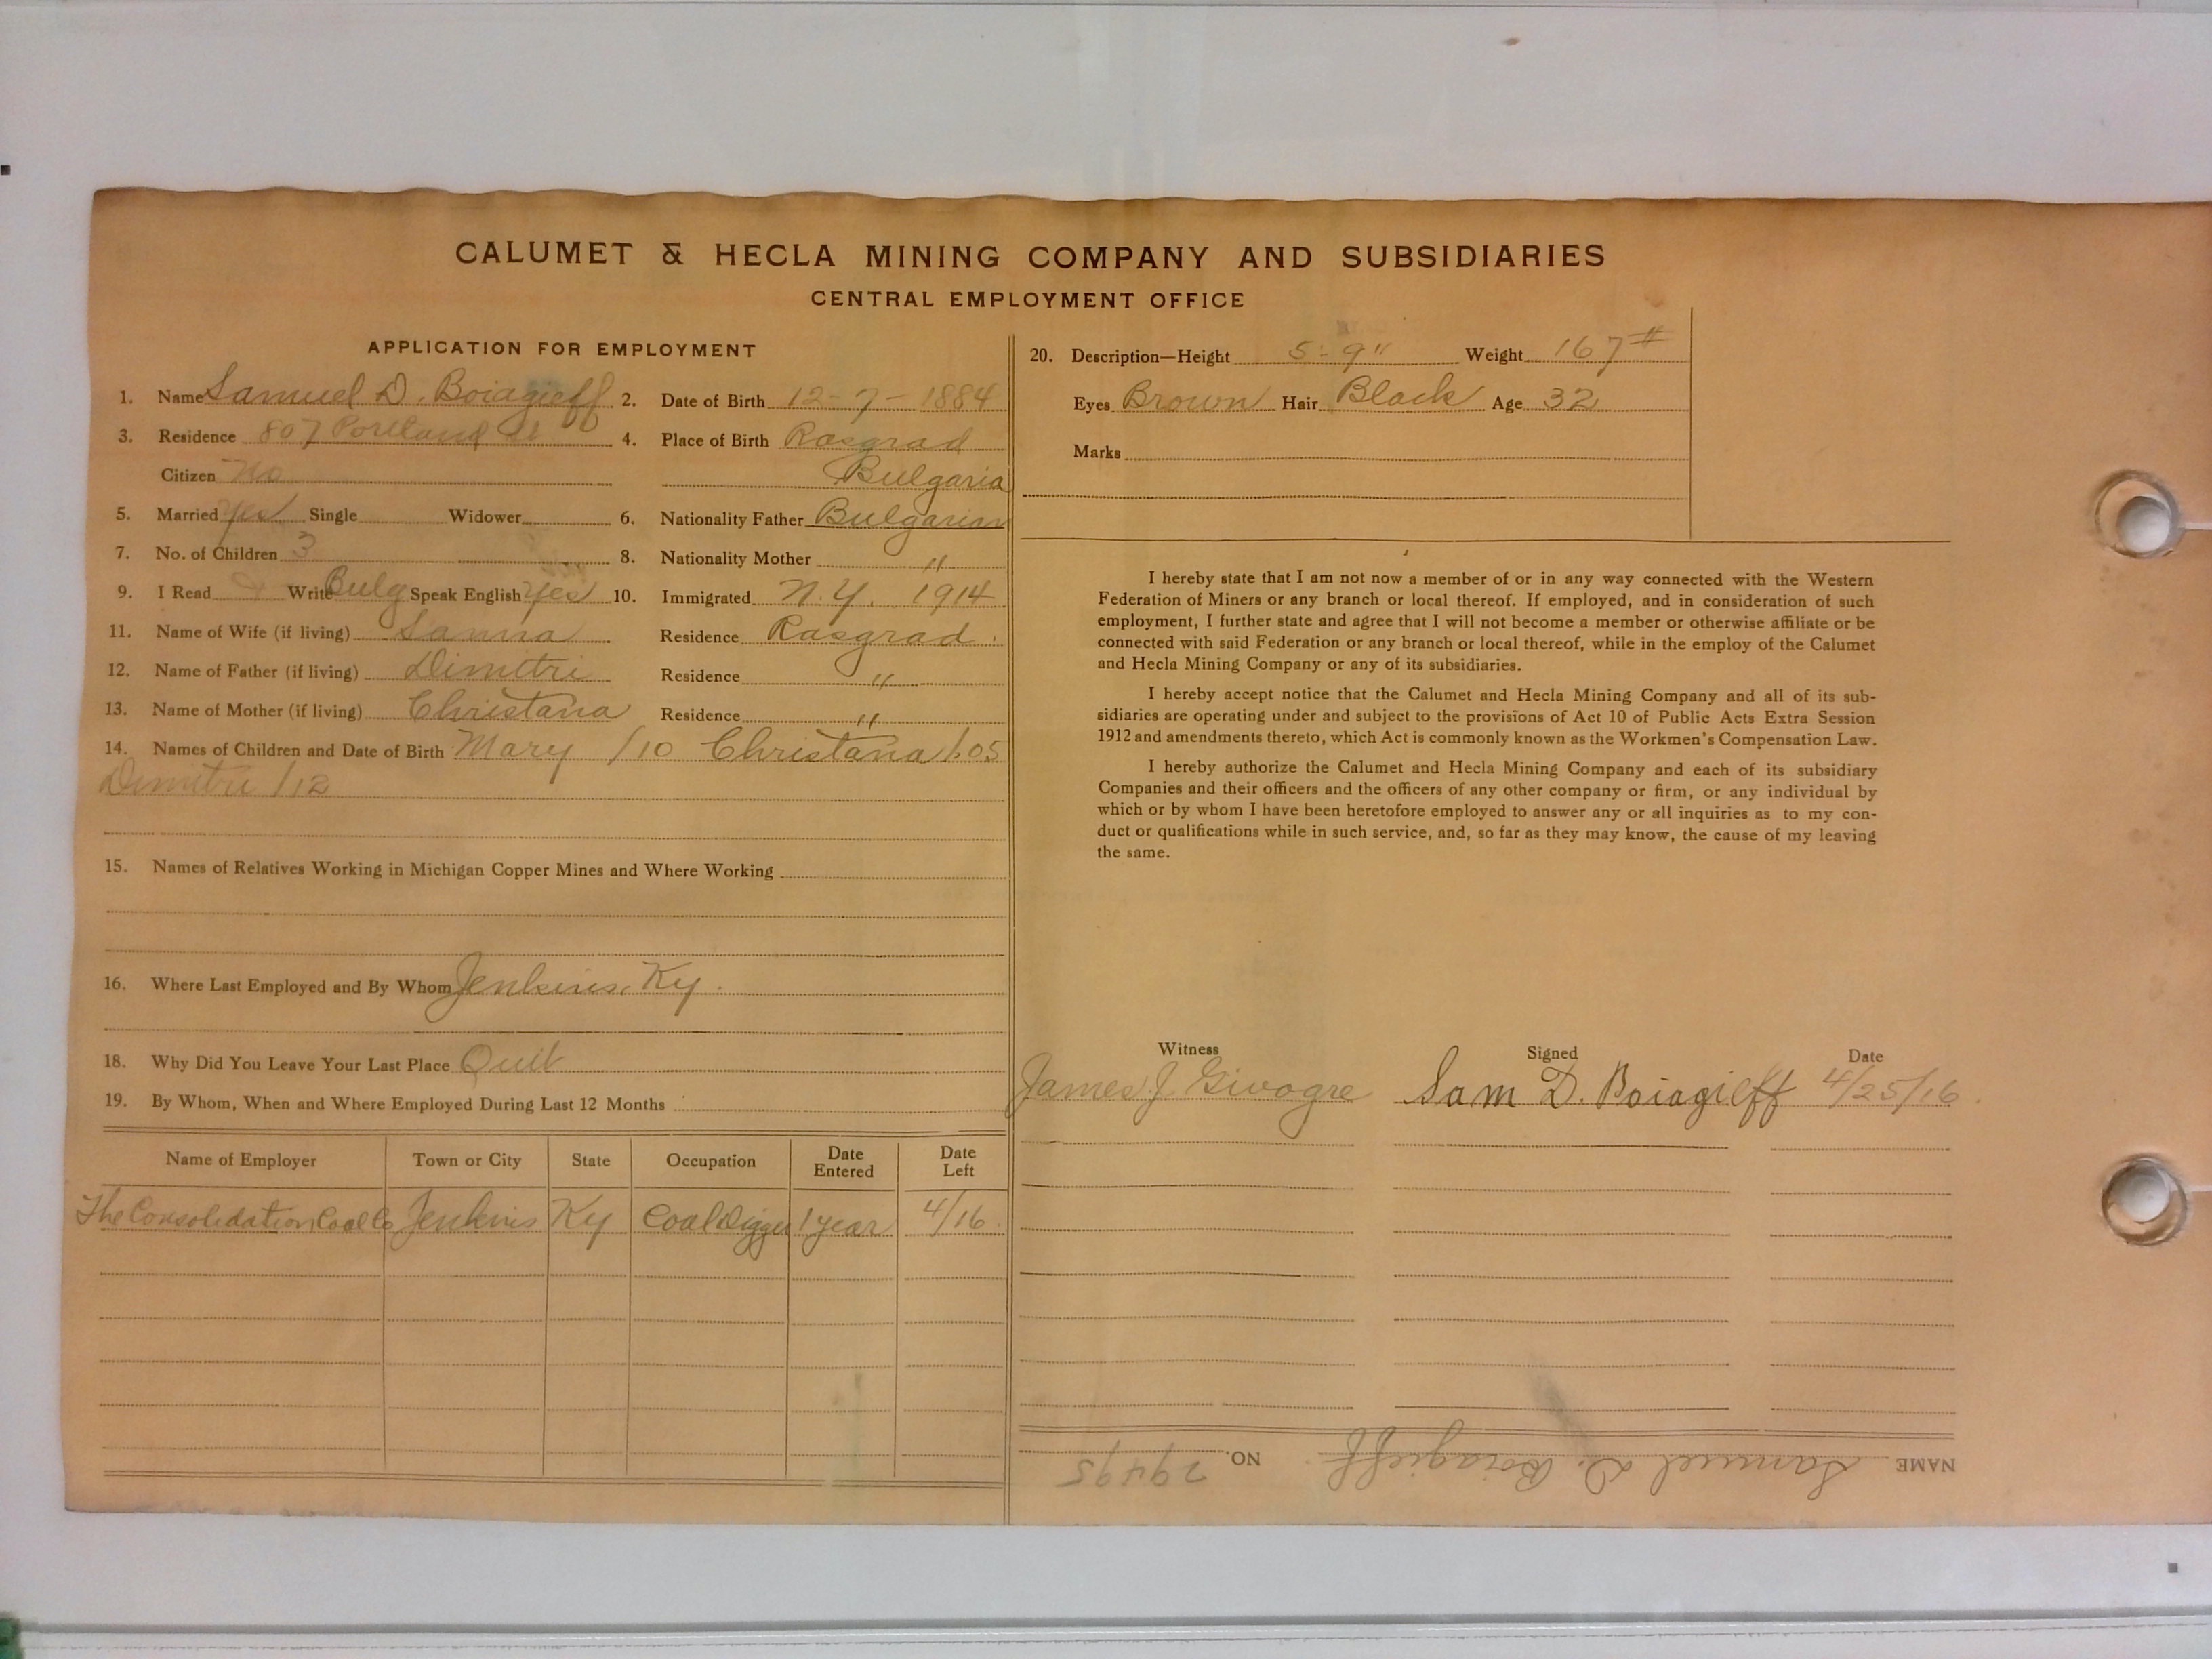 CALUMET & HECLA MINING COMPANY AND SUBSIDIARIES
CENTRAL EMPLOYMENT OFFICE
APPLICATION FOR EMPLOYMENT
1. Name Samuel D. Boiagieff 2. Date of Birth 12-7-1884
3. Residence 807 Portland St 4. Place of Birth Rasgrad
Citizen No Bulgaria
5. Married Yes Single Widower 6. Nationality Father Bulgarian
7. No. of Children 3 8. Nationality Mother "
9. I Read Write Bulg Speak English Yes 10. Immigrated N.Y. 1914
11. Name of Wife (if living) Sanna Residence Rasgrad.
12. Name of Father (if living) Dimitri Residence "
13. Name of Mother (if living) Christana Residence "
14. Names of Children and Date of Birth Mary /10 Christana /05
Dimitri /12
15. Names of Relatives Working in Michigan Copper Mines and Where Working
16. Where Last Employed and By Whom Jenkins, Ky.
18. Why Did You Leave Your Last Place Quit
19. By Whom, When and Where Employed During Last 12 Months
Name of Employer Town or City State Occupation Date Entered Date Left
The Consolidation Coal Co Jenkins Ky Coal Digger 1 year 4/16
20. Description—Height 5-9" Weight 167#
Eyes Brown Hair Black Age 32
Marks
I hereby state that I am not now a member of or in any way connected with the Western
Federation of Miners or any branch or local thereof. If employed, and in consideration of such
employment, I further state and agree that I will not become a member or otherwise affiliate or be
connected with said Federation or any branch or local thereof, while in the employ of the Calumet
and Hecla Mining Company or any of its subsidiaries.
I hereby accept notice that the Calumet and Hecla Mining Company and all of its sub-
sidiaries are operating under and subject to the provisions of Act 10 of Public Acts Extra Session
1912 and amendments thereto, which Act is commonly known as the Workmen's Compensation Law.
I hereby authorize the Calumet and Hecla Mining Company and each of its subsidiary
Companies and their officers and the officers of any other company or firm, or any individual by
which or by whom I have been heretofore employed to answer any or all inquiries as to my con-
duct or qualifications while in such service, and, so far as they may know, the cause of my leaving
the same.
Witness Signed Date
James J. Givogre Sam D. Boiagieff 4/25/16
NAME Samuel D. Boiagieff NO. 29495